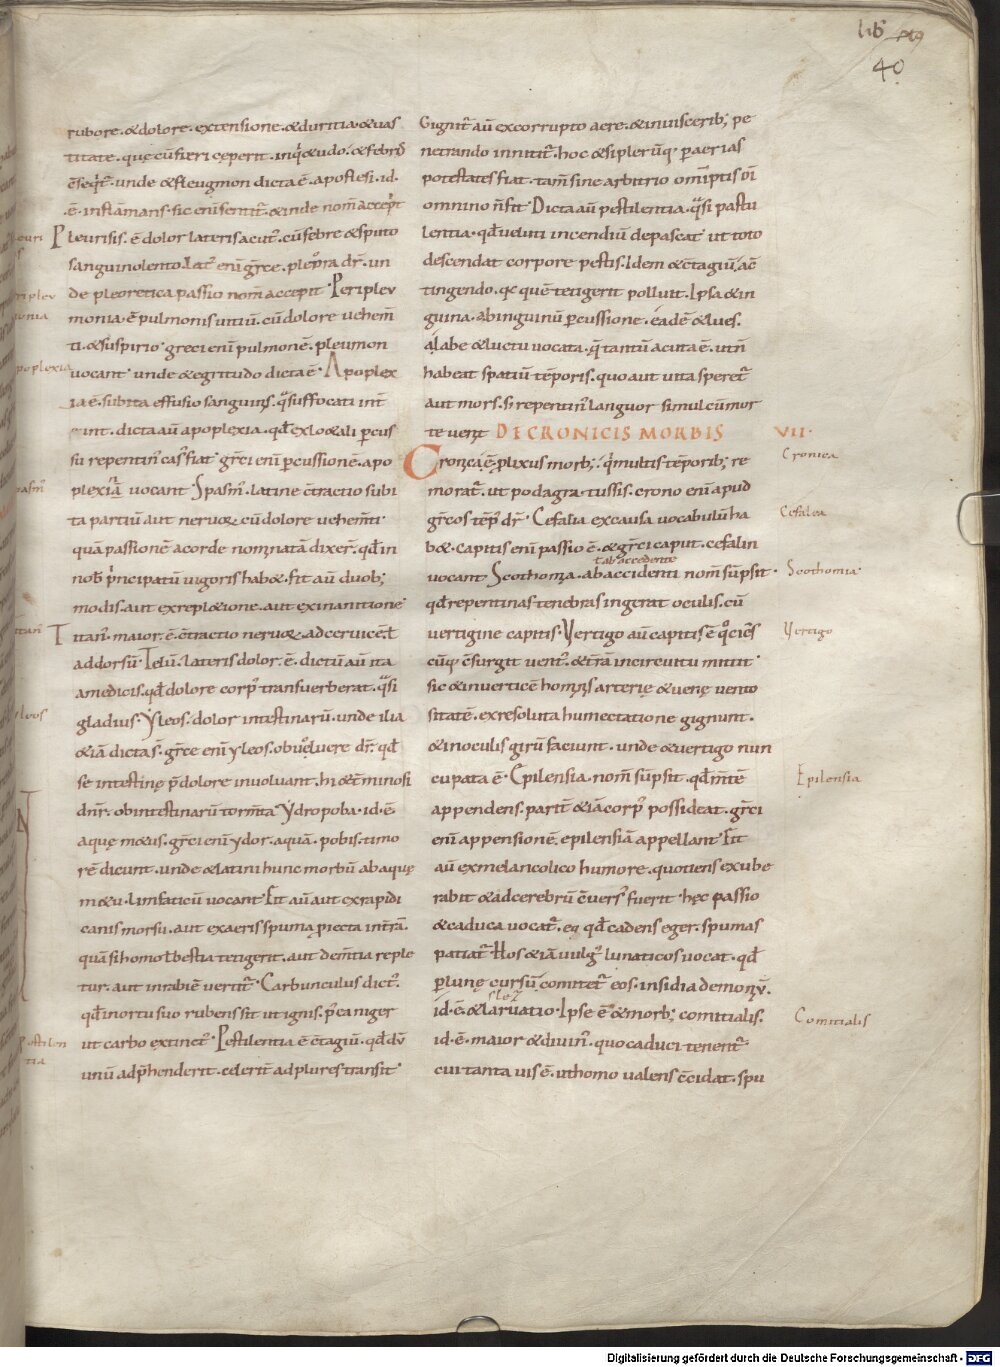 lib
40
rubore. & dolore. extensione. & duritia. & uas
titate. quę cū fieri cęperit. inq¹& udo. & febris
c̄seq¹t᷑. unde & fleugmon dicta ē. apoflesi. id.
ē. inflāmans. sic enī sentit᷑. & inde nom̄ accep̄t
Pleurisis. ē dolor lateris acut᷒. cū febre & sputo
sanguinolento. Lat᷒ enī gr̄ce. pleura dr̄. un
de pleoretica passio nom̄ accepit. Peripleu
monia. ē pulmonis uitiū. cū dolore uehem̄
ti. & suspirio. greci enī pulmonē. pleumon
uocant. unde & egritudo dicta ē. Apoplex
ia ē. subita effusio sanguinis. q̄ suffocati int̄
eunt. dicta aū apoplexia. qđ ex lo&ali ꝑcus
su repentin᷒ cas᷒ fiat. gr̄ci enī ꝑcussionē. apo
plexiā uocant. Spasm᷒. latine c̄tractio subi
ta partiū aut neruoꝝ cū dolore uehem̄ti.
quā passionē a corde nominatā dixer̄. qđ in
nob̄ p¹ncipatū uigoris hab&. fit aū duob;
modis. aut ex repl&ione. aut ex inanitione
Titan᷒. maior. ē. c̄tractio neruoꝝ ad ceruicē ł
ad dorsū. Telū. lateris dolor. ē. dictū aū ita
a medicis. qđ dolore corp᷒ transuerberat. q̄si
gladius. Yleos. dolor intestinarū. unde ilia
& iā dicta s̄. gr̄ce enī yleos. obuoluere dr̄. qđ
se intestinę p̄ dolore inuoluant. hi & t̄minosi
dn̄r. ob intestinarū torm̄ta. Ydropoba. id. ē
aquę m&us. gr̄ci enī ydor. aquā. pobis. timo
rē dicunt. unde & latini hunc morbū ab aquę
m&u. limfaticū uocant. Fit aū aut ex rapidi
canis morsu. aut ex aeris spuma p̄iecta in t̄rā.
quā si homo ł bestia tetigerit. aut dem̄tia reple
tur. aut in rabiē uertit᷑. Carbunculus dict᷒.
qđ in ortu suo rubens sit ut ignis. p᷒ea niger
ut carbo extinct᷒. Pestilentia ē c̄tagiū. qđ dū
unū adp̄henderit. celerit̄ ad plures transit.
Gignit᷑ aū ex corrupto aere. & in uiscerib; pe
netrando innitit᷑. hoc & si plerūq. ꝑ aerias
potestates fiat. tam̄ sine arbitrio om̄iptis dī
omnino n̄ fit. Dicta aū pestilentia. q̄si pastu
lentia. qđ ueluti incendiū depascat. ut toto
descendat corpore pestis. Idem & c̄tagiū. a c̄
tingendo. qꝛ quē tetigerit polluit. Ipsa & in
guina. ab inguinū ꝑcussione. eadē & lues.
a labe & luctu uocata. q̄ tantū acuta ē. ut n̄
habeat spatiū tēporis. quo aut uita speret᷑
aut mors. s; repentin᷒ languor simul cū mor
te uenit. DE CRONICIS MORBIS VII.
Cronica ē ꝓlixus morb;. q¹ multis tēporib; re
morat᷑. ut podagra. tussis. crono enī apud
gr̄cos tēp᷒ dr̄. Cefalia ex causa uocabulū ha
b&. capitis enī passio ē. & gr̄ci caput. cefalin
ł ab accedente
uocant. Scothomia. ab accidenti nom̄ sūpsit.
qđ repentinas tenebras ingerat oculis. cū
uertigine capitis. Vertigo aū capitis ē qociēs
cūq. c̄surgit uent᷒. & t̄rā in circuitu mittit.
sic & in uertice hominis arterię & uenę uento
sitatē. ex resoluta humectatione gignunt.
& in oculis girū faciunt. unde & uertigo nun
cupata ē. Epilensia. nom̄ sūpsit. qđ m̄tē
appendens. parit̄ & iā corp᷒ possideat. gr̄ci
enī appensionē. epilensiā appellant. Fit
aū ex melancolico humore. quotiens exube
rabit & ad cerebrū c̄uers᷒ fuerit. hęc passio
& caduca uocat᷑. eo qđ cadens eger. spumas
patiat᷑. Hos & iā uulg᷒ lunaticos uocat. qđ
ꝑ lunę cursū comitet᷑ eos. insidia demonū.
id. ē. & laruatio. Ipse ē & morb; comitialis.
id. ē. maior & diuin᷒. quo caduci tenent᷑.
cui tanta uis ē. ut homo ualens c̄cidat. spu
Cronica
Cefalea
Scothomia
Vertigo
Epilensia
Comitialis
Pestilen
tia
Digitalisierung gefördert durch die Deutsche Forschungsgemeinschaft - DFG